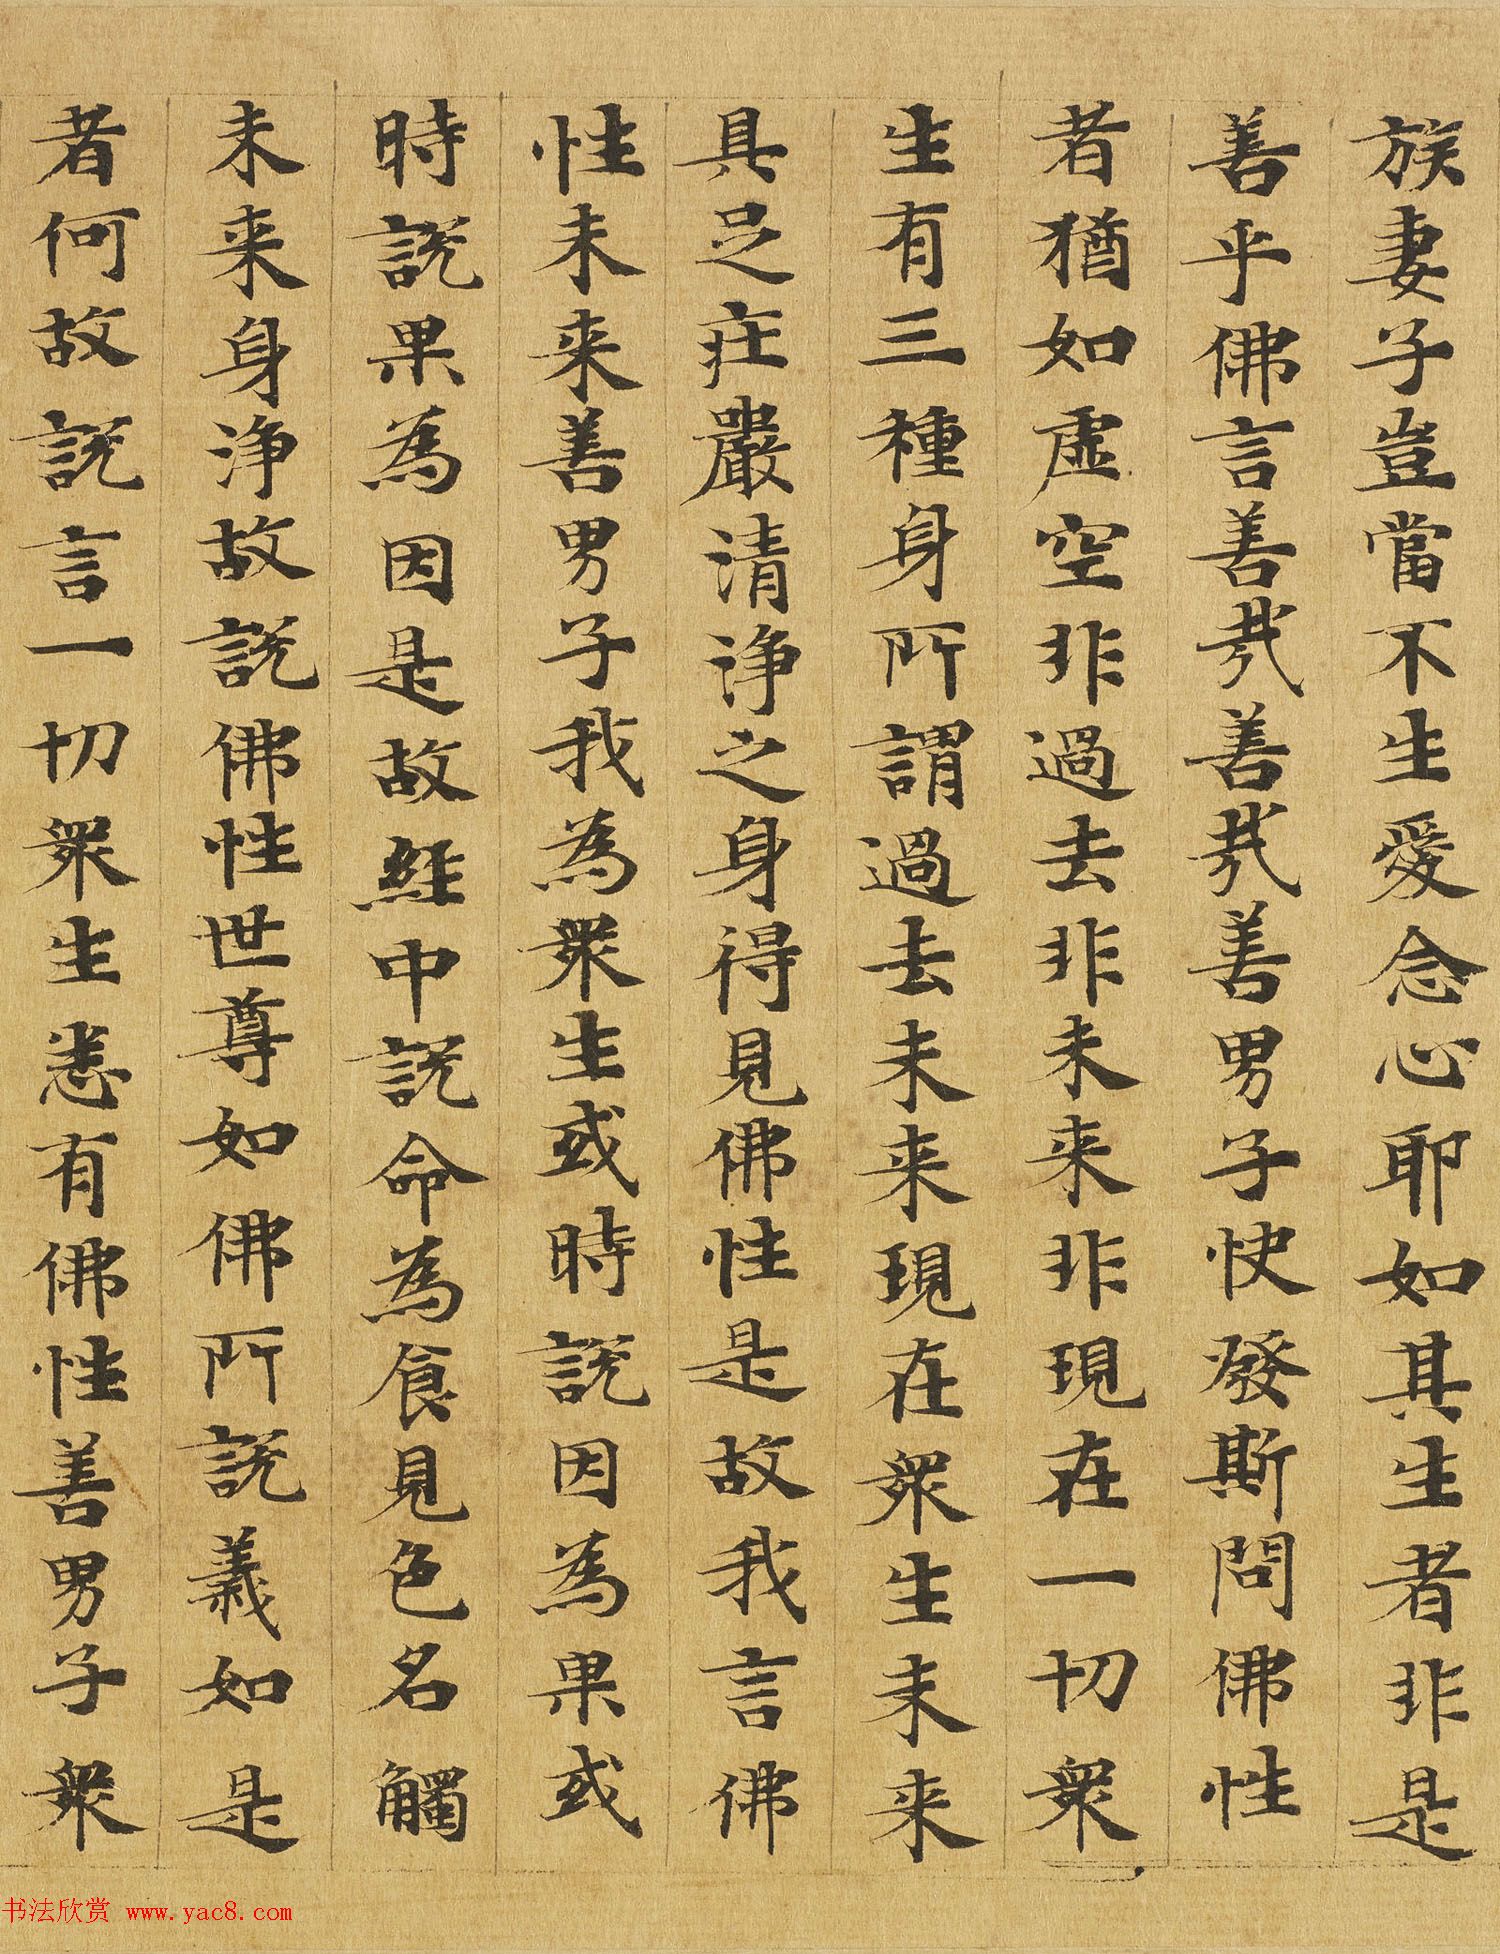 族妻子豈當不生愛念心耶如其生者非是
善乎佛言善㢤善㢤善男子快發斯問佛性
者猶如虛空非過去非未来非現在一切衆
生有三種身所謂過去未来現在衆生未来
具足庄嚴清淨之身得見佛性是故我言佛
性未来善男子我為衆生或時說因為果或
時說果為因是故經中說命為食見色名觸
未来身淨故說佛性世尊如佛所說義如是
者何故說言一切衆生悉有佛性善男子衆
书法欣赏 www.yac8.com